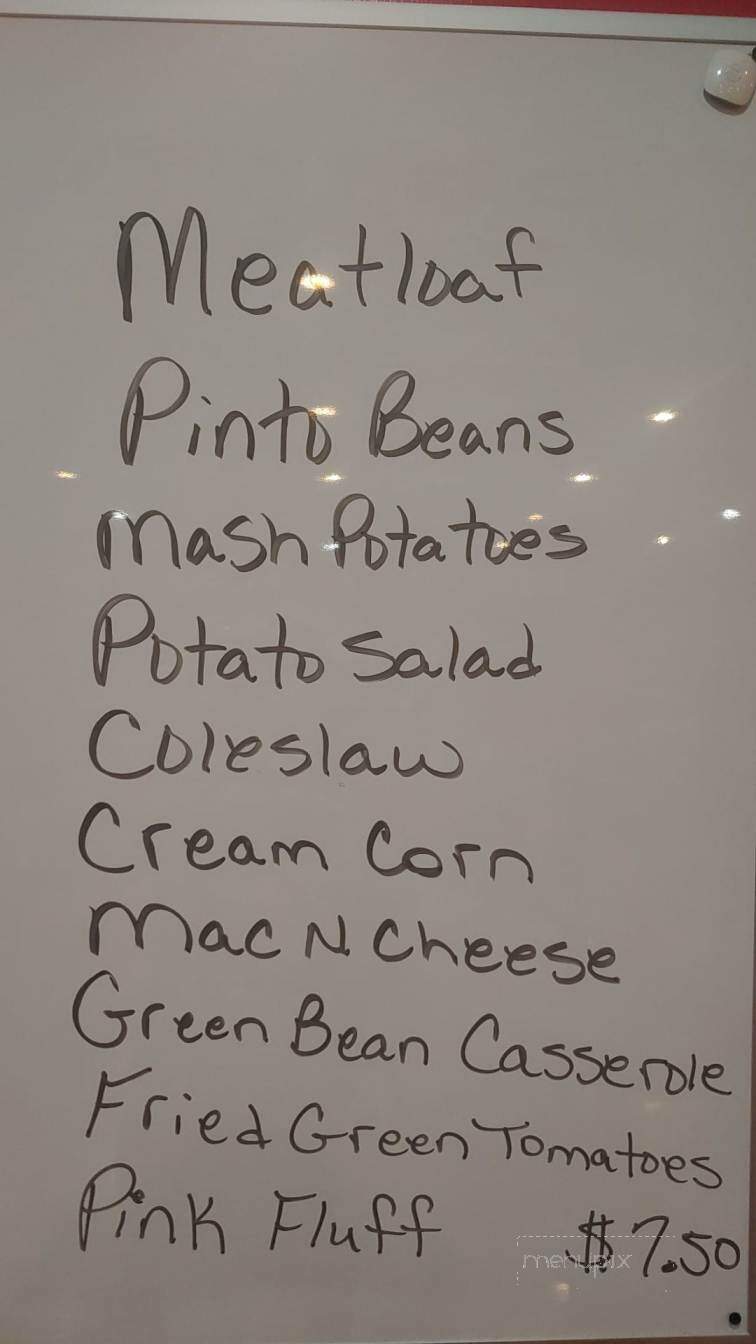 Meatloaf
Pinto Beans
Mash Potatoes
Potato Salad
Coleslaw
Cream Corn
Mac N Cheese
Green Bean Casserole
Fried Green Tomatoes
Pink Fluff $7.50
menupix